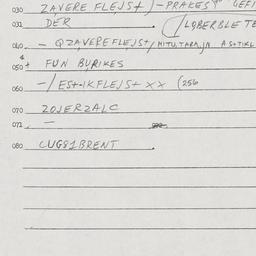 030 ZAVERE FLEJSt) - PRAKES
031 DER
040 - QZAVEREFLEJSt/MITU,TARAJN
050 FUN BURIKES
060 -/ ESt-IKFLEJSt XX (256
070 ZOJERZALC
071 -
080 CUG81BRENT